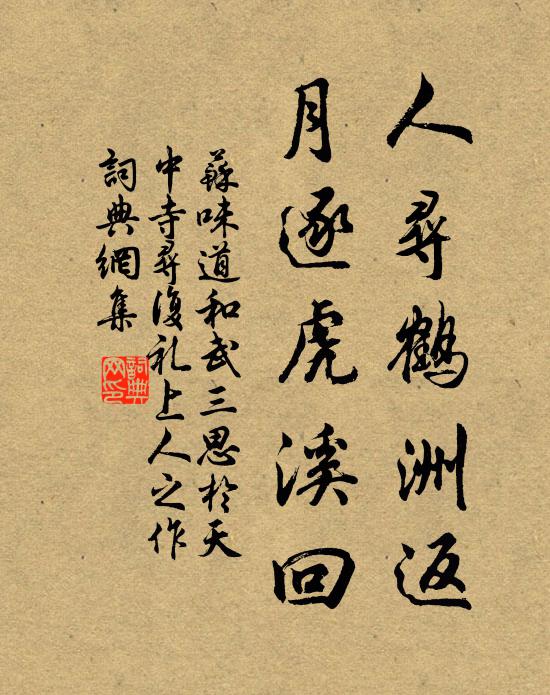 人尋鶴洲返
月逐虎溪回
蘇味道和武三思於天
中寺尋復礼上人之作
詞典網集
詞典網印